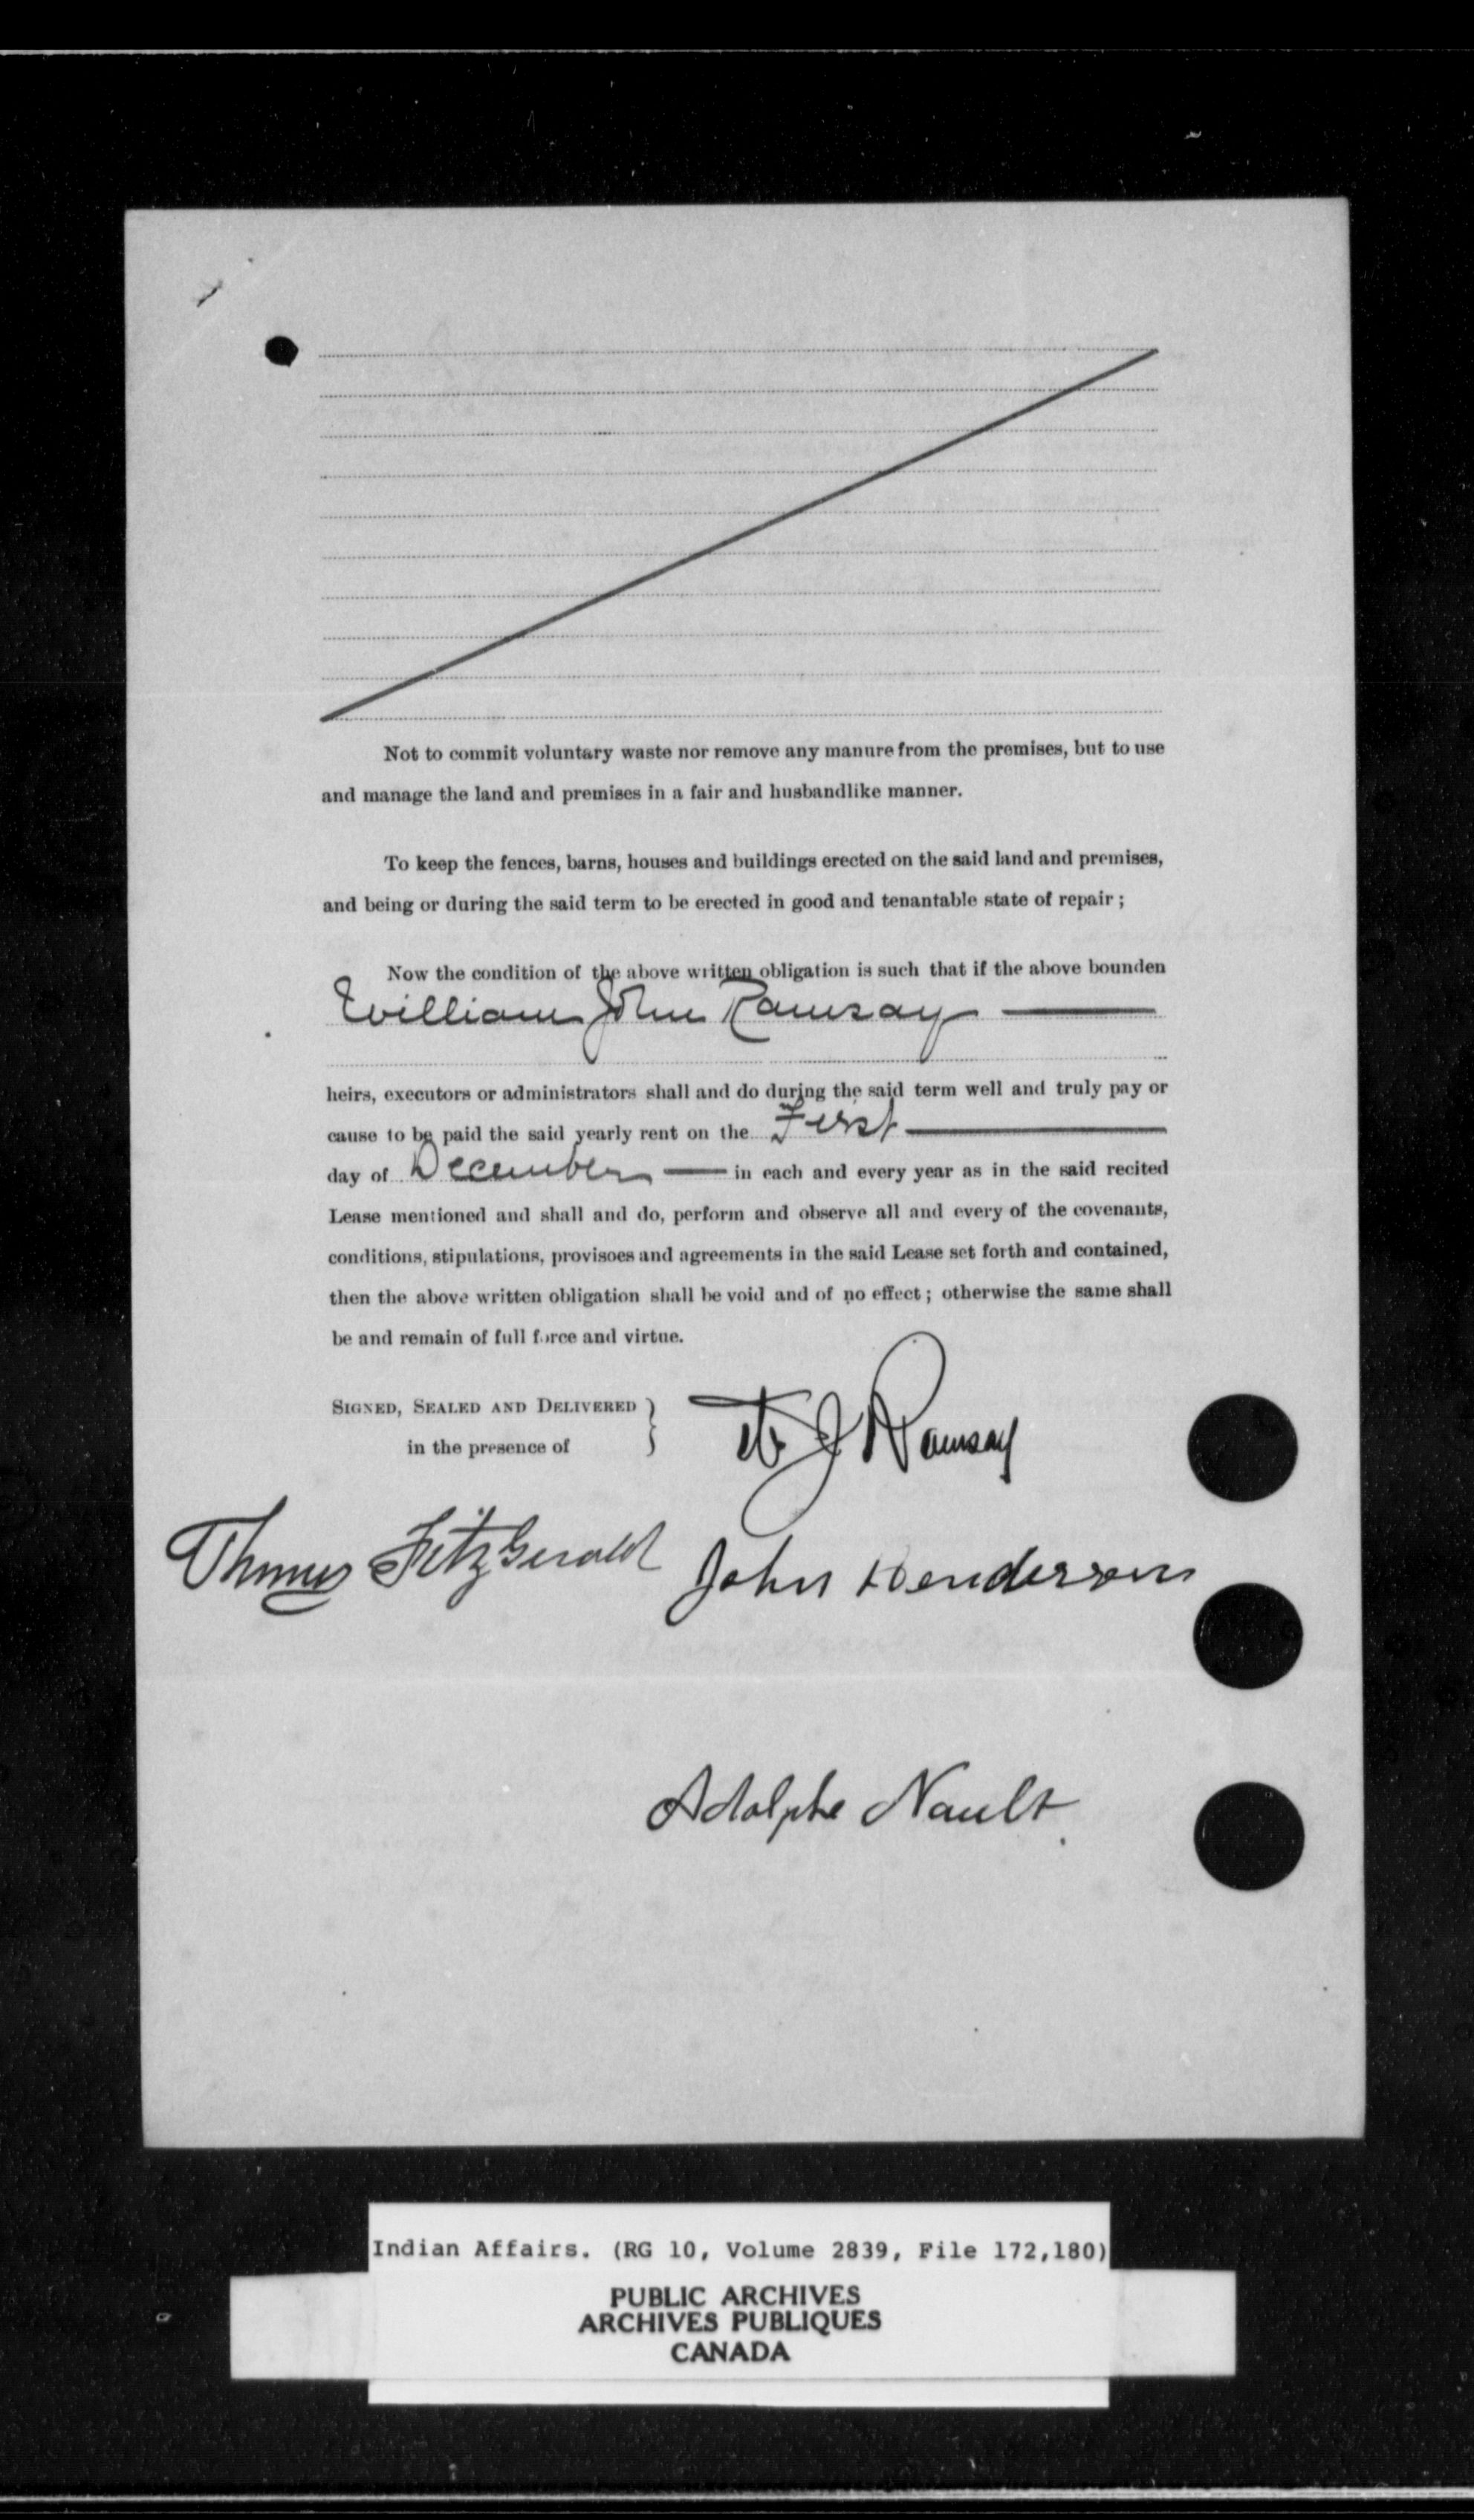 Not to commit voluntary waste nor remove any manure from the premises, but to use
and manage the land and premises in a fair and husbandlike manner.
To keep the fences, barns, houses and buildings erected on the said land and premises,
and being or during the said term to be erected in good and tenantable state of repair ;
Now the condition of the above written obligation is such that if the above bounden
William John Ramsay
heirs, executors or administrators shall and do during the said term well and truly pay or
cause to be paid the said yearly rent on the First
day of December in each and every year as in the said recited
Lease mentioned and shall and do, perform and observe all and every of the covenants,
conditions, stipulations, provisoes and agreements in the said Lease set forth and contained,
then the above written obligation shall be void and of no effect ; otherwise the same shall
be and remain of full force and virtue.
SIGNED, SEALED AND DELIVERED }
in the presence of
W J Ramsay
Thomas FitzGerald
John Henderson
Adolphe Nault.
Indian Affairs. (RG 10, Volume 2839, File 172,180)
PUBLIC ARCHIVES
ARCHIVES PUBLIQUES
CANADA